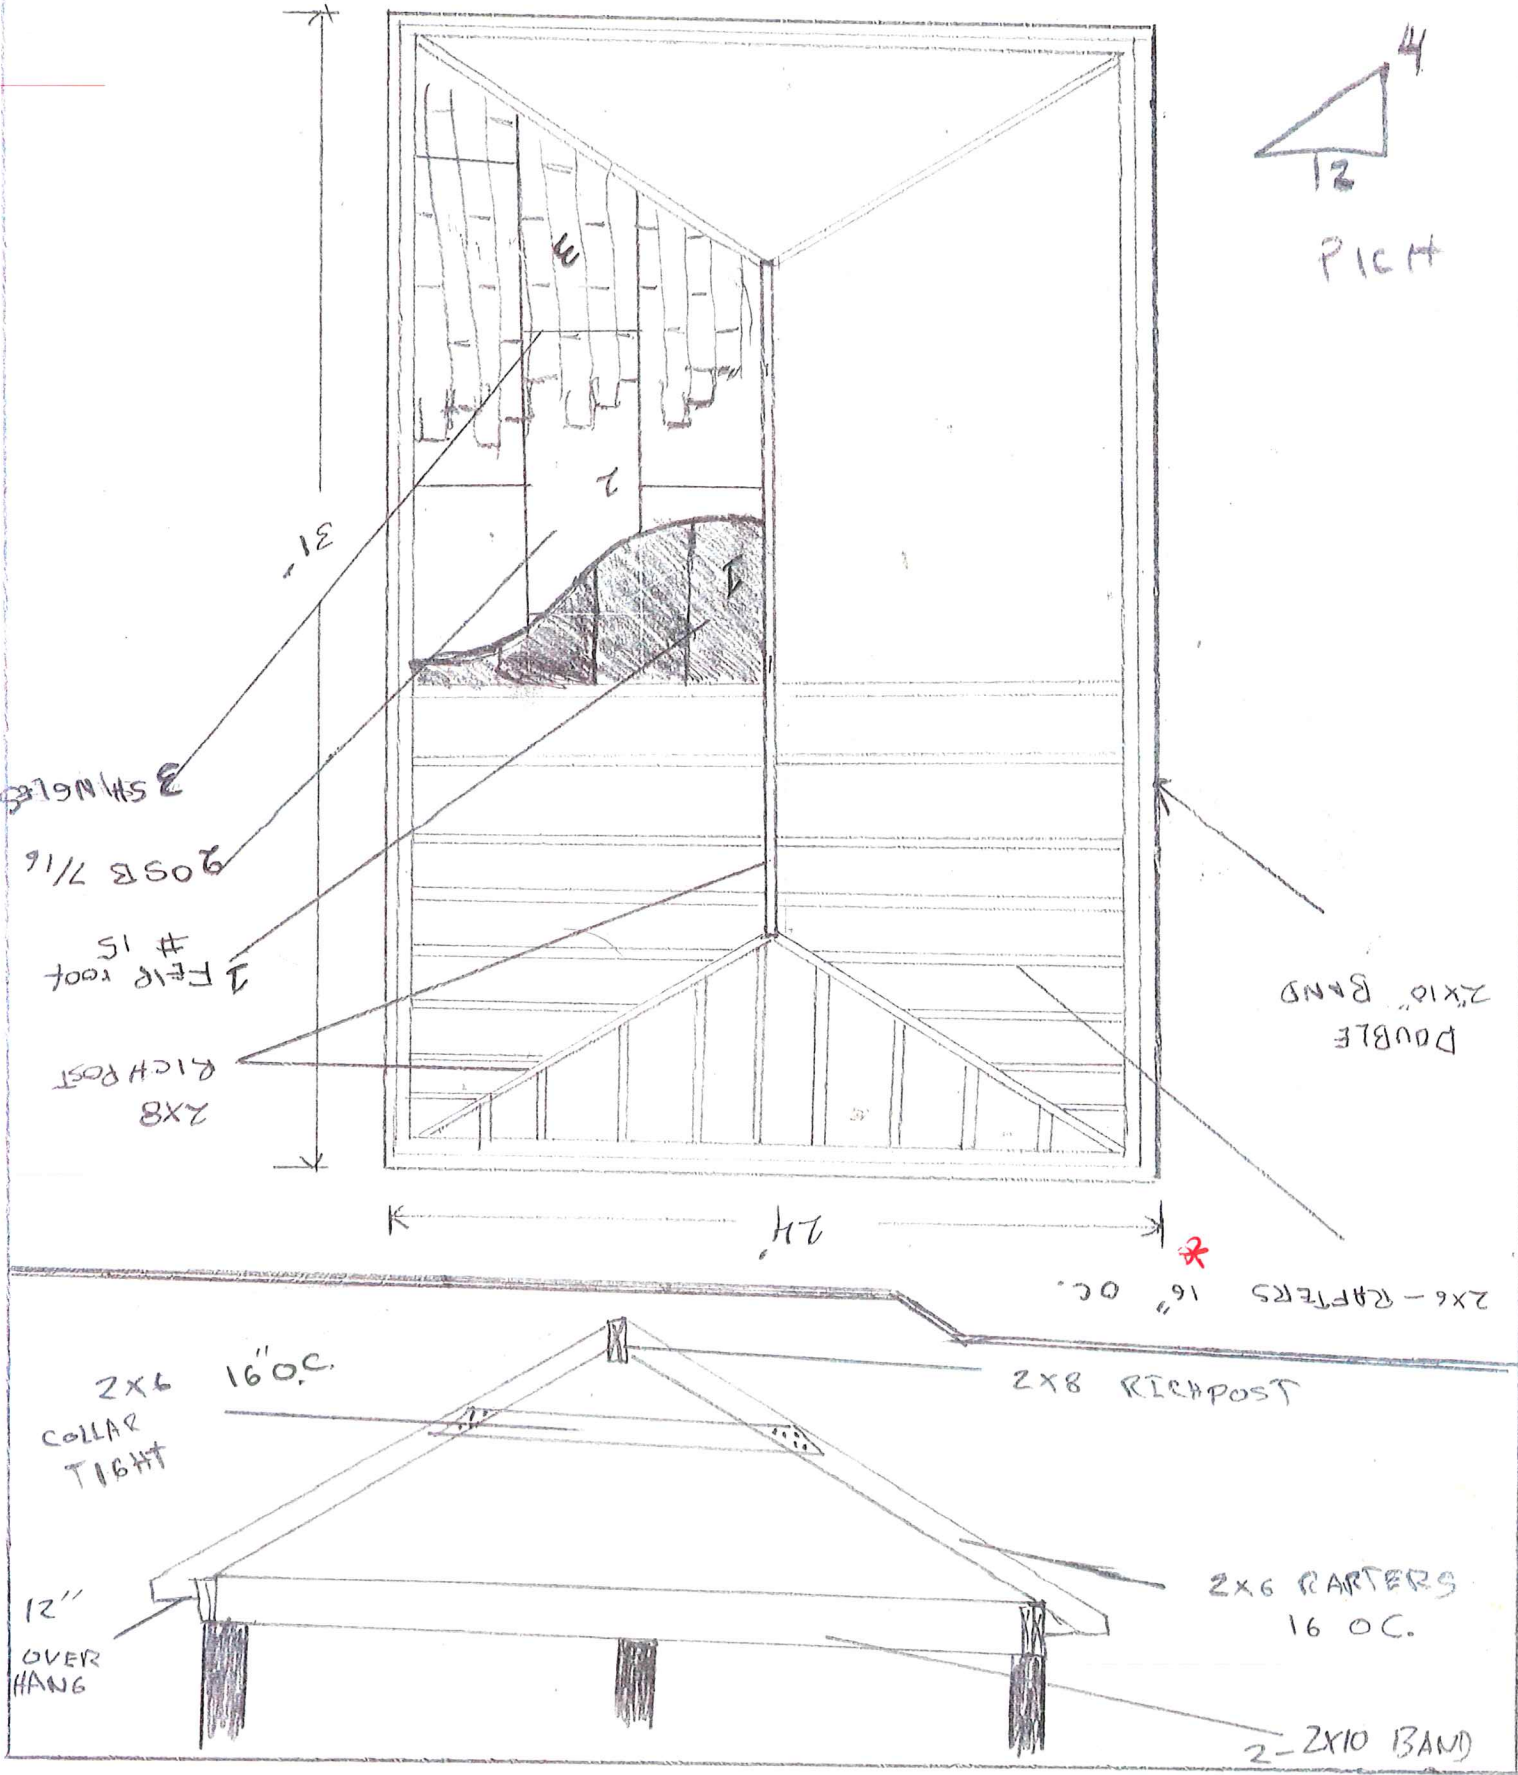 4
12
PICH
31'
3 SHINGLES
2 OSB 7/16
1 FElR roof
# 15
2X8
RICHPOST
DOUBLE
2"X10" BAND
24'
*
2X6 - RAFTERS 16" OC.
3
2
1
2X6 16" O.C.
COLLAR
TIGHT
2X8 RICHPOST
12"
OVER
HANG
2X6 RARTERS
16 OC.
2-2X10 BAND